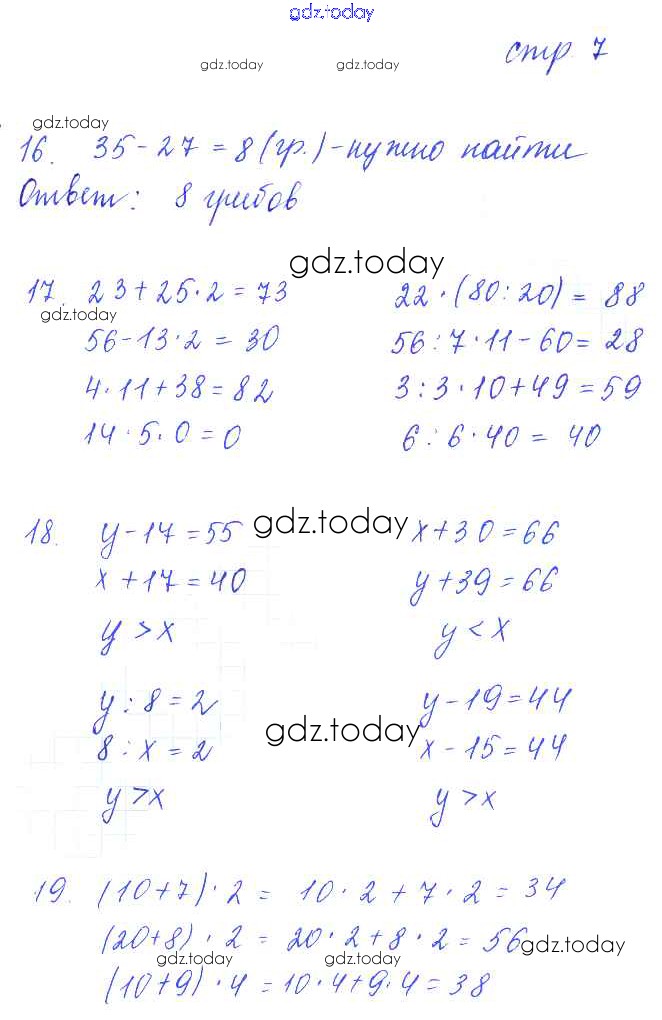 gdz.today
стр 7
gdz.today gdz.today
gdz.today
16. 35 - 27 = 8 (гр.) - нужно найти
Ответ: 8 грибов
gdz.today
17. 23 + 25 · 2 = 73
gdz.today
56 - 13 · 2 = 30
4 · 11 + 38 = 82
14 · 5 · 0 = 0
22 · (80 : 20) = 88
56 : 7 · 11 - 60 = 28
3 : 3 · 10 + 49 = 59
6 : 6 · 40 = 40
18. y - 17 = 55
x + 17 = 40
y > x
gdz.today
x + 30 = 66
y + 39 = 66
y < x
y : 8 = 2
8 : x = 2
y > x
gdz.today
y - 19 = 44
x - 15 = 44
y > x
19. (10 + 7) · 2 = 10 · 2 + 7 · 2 = 34
(20 + 8) · 2 = 20 · 2 + 8 · 2 = 56
gdz.today
gdz.today gdz.today
(10 + 9) · 4 = 10 · 4 + 9 · 4 = 38